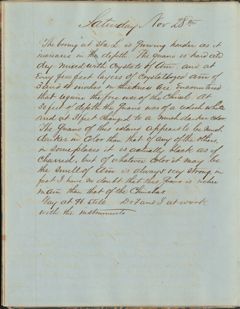 Saturday Nov 28th
The boring at Sta 2 is growing harder as it
increases in the depth. The Guano is hard and
dry mixed with Crystals of Am and at
Every few feet layers of Crystallized Am of
3 and 4 inches in thickness are encountered
that
use of the Chisel At
30 feet of depth the Guano was of a
and at 31 feet changed to a much darker color
The Guano of this island appears to be much
darker in Color than that of any of the others
in some places it is actually black as if
Charred, but of whatever color it may be
the smell of Am is always very strong in
fact I have no doubt that this Guano is richer
than that of the Chinchas
Day at 76 still. Dr F and I at work
with the instruments